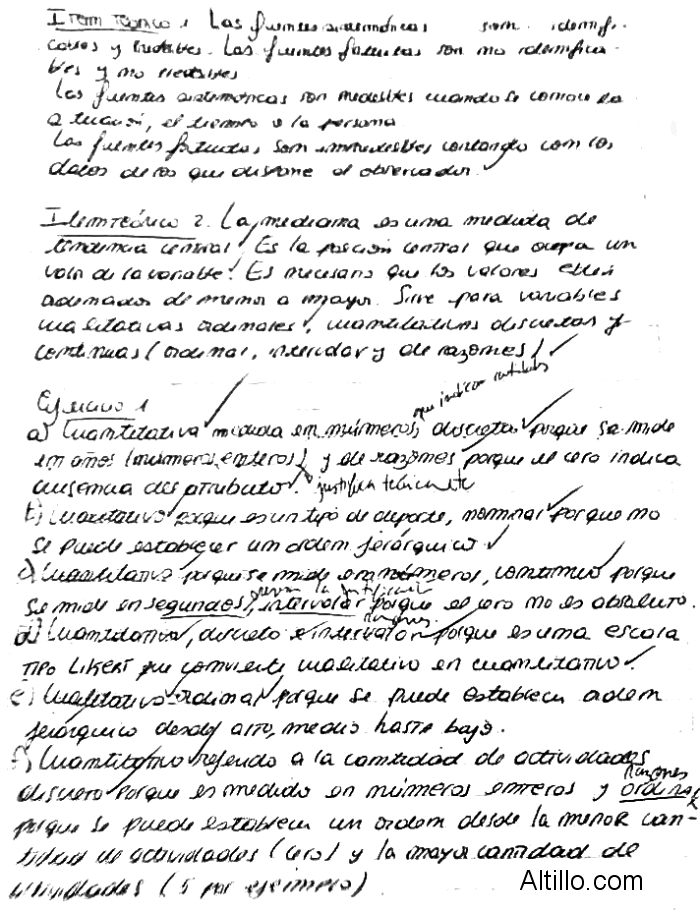 Item Teórico 1 Las fuentes sistemáticas son identifi-
cables y evitables. Las fuentes fortuitas son no identifica-
bles y no evitables
Las fuentes sistemáticas son medibles cuando se conoce la
situación, el tiempo o la persona
Las fuentes fortuitas son inmedibles
datos de los que dispone el observador.
Item Teórico 2. La mediana es una medida de
tendencia central. Es la posición central que ocupa un
valor de la variable. Es necesario que los valores estén
ordenados de menor a mayor. Sirve para variables
cualitativas ordinales, cuantitativas discretas y
continuas (ordinal, intervalar y de razones)
Ejercicio 1
que indican cantidades
a) Cuantitativa medida en números, discreta porque se mide
en años (números enteros) y de razones porque el cero indica
ausencia del atributo. justifica
b) Cualitativa porque es un tipo de deporte, nominal porque no
se puede establecer un orden jerárquico
c) porque se mide en números, continua porque
se mide en segundos, intervalar porque el cero no es absoluto.
razones
d) Cuantitativa, discreta e intervalar porque es una escala
tipo Likert que convierte cualitativo en cuantitativo.
e) Cualitativa ordinal porque se puede establecer orden
jerárquico desde alto, medio hasta bajo.
f) Cuantitativo referido a la cantidad de actividades
razones
discreto porque es medido en números enteros y ordinal
porque se puede establecer un orden desde la menor can-
tidad de actividades (cero) y la mayor cantidad de
actividades (5 por ejemplo)
Altillo.com